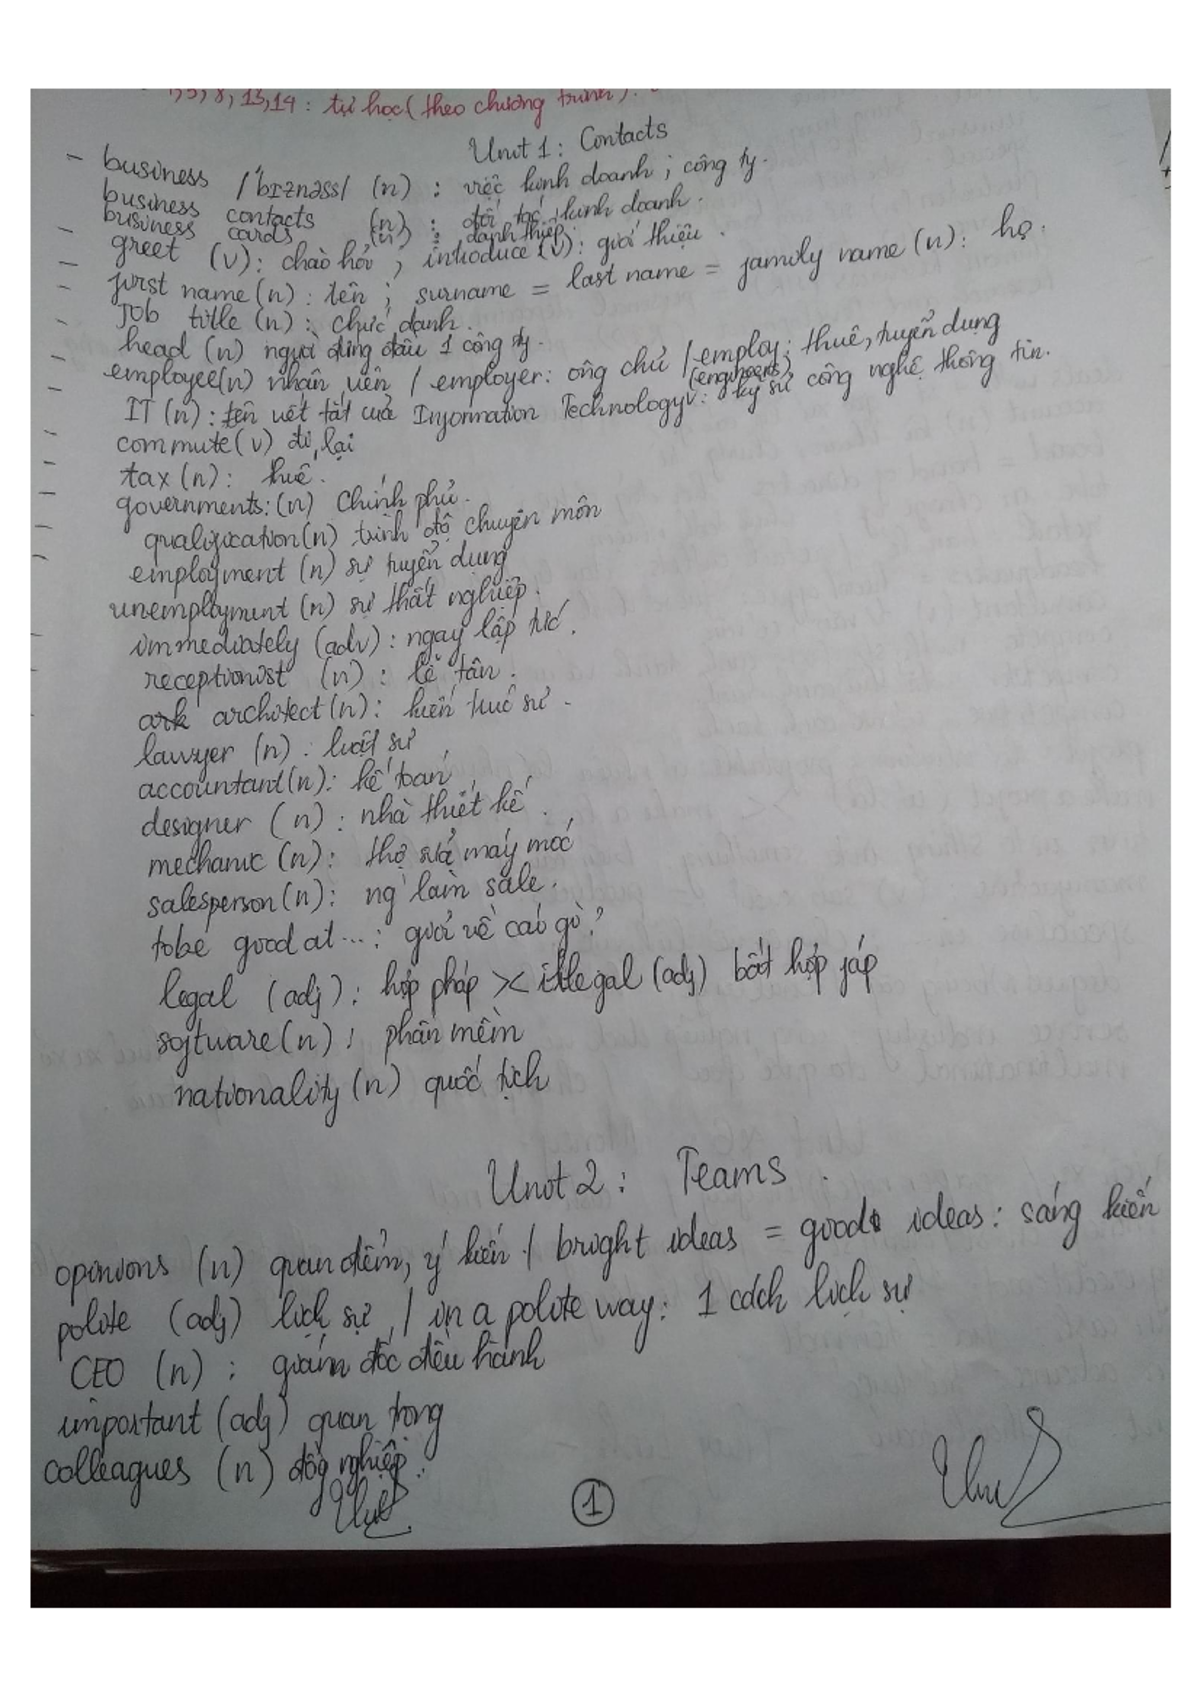 ,5, 8, 13,14 : tự học ( theo chương trình).
Unit 1 : Contacts
- business /'bɪznəss/ (n) : việc kinh doanh ; công ty.
business contacts (n) : đối tác kinh doanh.
business cards (n) : danh thiếp.
- greet (v): chào hỏi , introduce (v): giới thiệu .
- first name (n) : tên ; surname = last name = family name (n): họ.
- Job title (n) : chức danh.
- head (n) người đứng đầu 1 công ty.
- employee(n) nhân viên / employer: ông chủ / employ: thuê, tuyển dụng
- IT (n) : tên viết tắt của Information Technology (engineers): kỹ sư công nghệ thông tin.
- commute (v) đi lại
- tax (n): thuế.
- governments: (n) Chính phủ.
- qualification (n) trình độ chuyên môn
employment (n) sự tuyển dụng
unemployment (n) sự thất nghiệp.
immediately (adv) : ngay lập tức.
receptionist (n) : lễ tân.
ark architect (n): kiến trúc sư.
lawyer (n) : luật sư
accountant (n): kế toán
designer (n) : nhà thiết kế.
mechanic (n): thợ sửa máy móc
salesperson (n): ng' làm sale.
tobe good at ... : giỏi về cái gì ?
legal (adj) : hợp pháp >< illegal (adj) bất hợp jáp
software (n) : phần mềm
nationality (n) quốc tịch
Unit 2 : Teams .
opinions (n) quan điểm, ý kiến / bright ideas = good ideas : sáng kiến
polite (adj) lịch sự / in a polite way: 1 cách lịch sự
CEO (n) : giám đốc điều hành
important (adj) quan trọng
colleagues (n) đồg nghiệp.
1